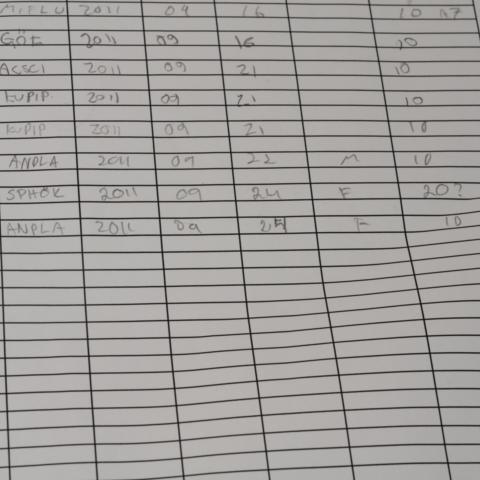 2011 09 16
GÖE 2011 09 16 10
ACSCI 2011 09 21 10
KUPIP 2011 09 21 10
KUPIP 2011 09 21 10
ANPLA 2011 09 22 M 10
SPHÖK 2011 09 24 F 20?
ANPLA 2011 09 F 10